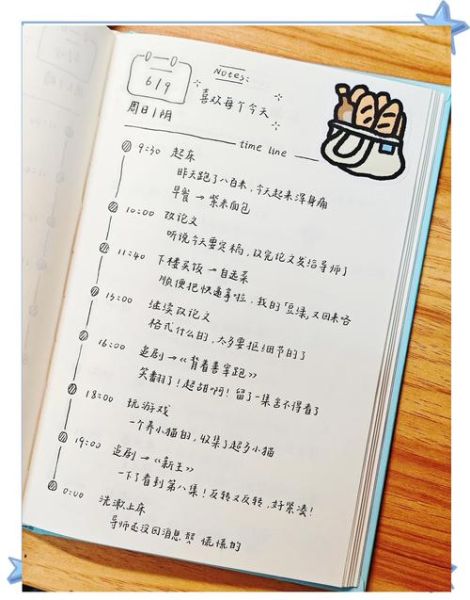 Notes:
6/9
喜欢每个今天
周日/阴
time line
9:30 起床
昨天跑了八百米，今天起来浑身痛
早餐→紫米面包
10:00 改论文
听说今天要定稿，改完论文发给导师了
11:40 下楼买饭→自选菜
顺便把快递拿啦，我的「豆绿」又回来咯
15:00 继续改论文
格式什么的，太多要抠细节的了
16:00 追剧→《背着善宰跑》
笑翻了！超甜啊！留了一集舍不得看了
18:00 玩游戏
一个养小猫的，收集了超多小猫
19:00 追剧→《新生》
一下了看到第八集！反转又反转，好紧凑！
0:00 洗漱上床
导师还没回消息 慌慌的